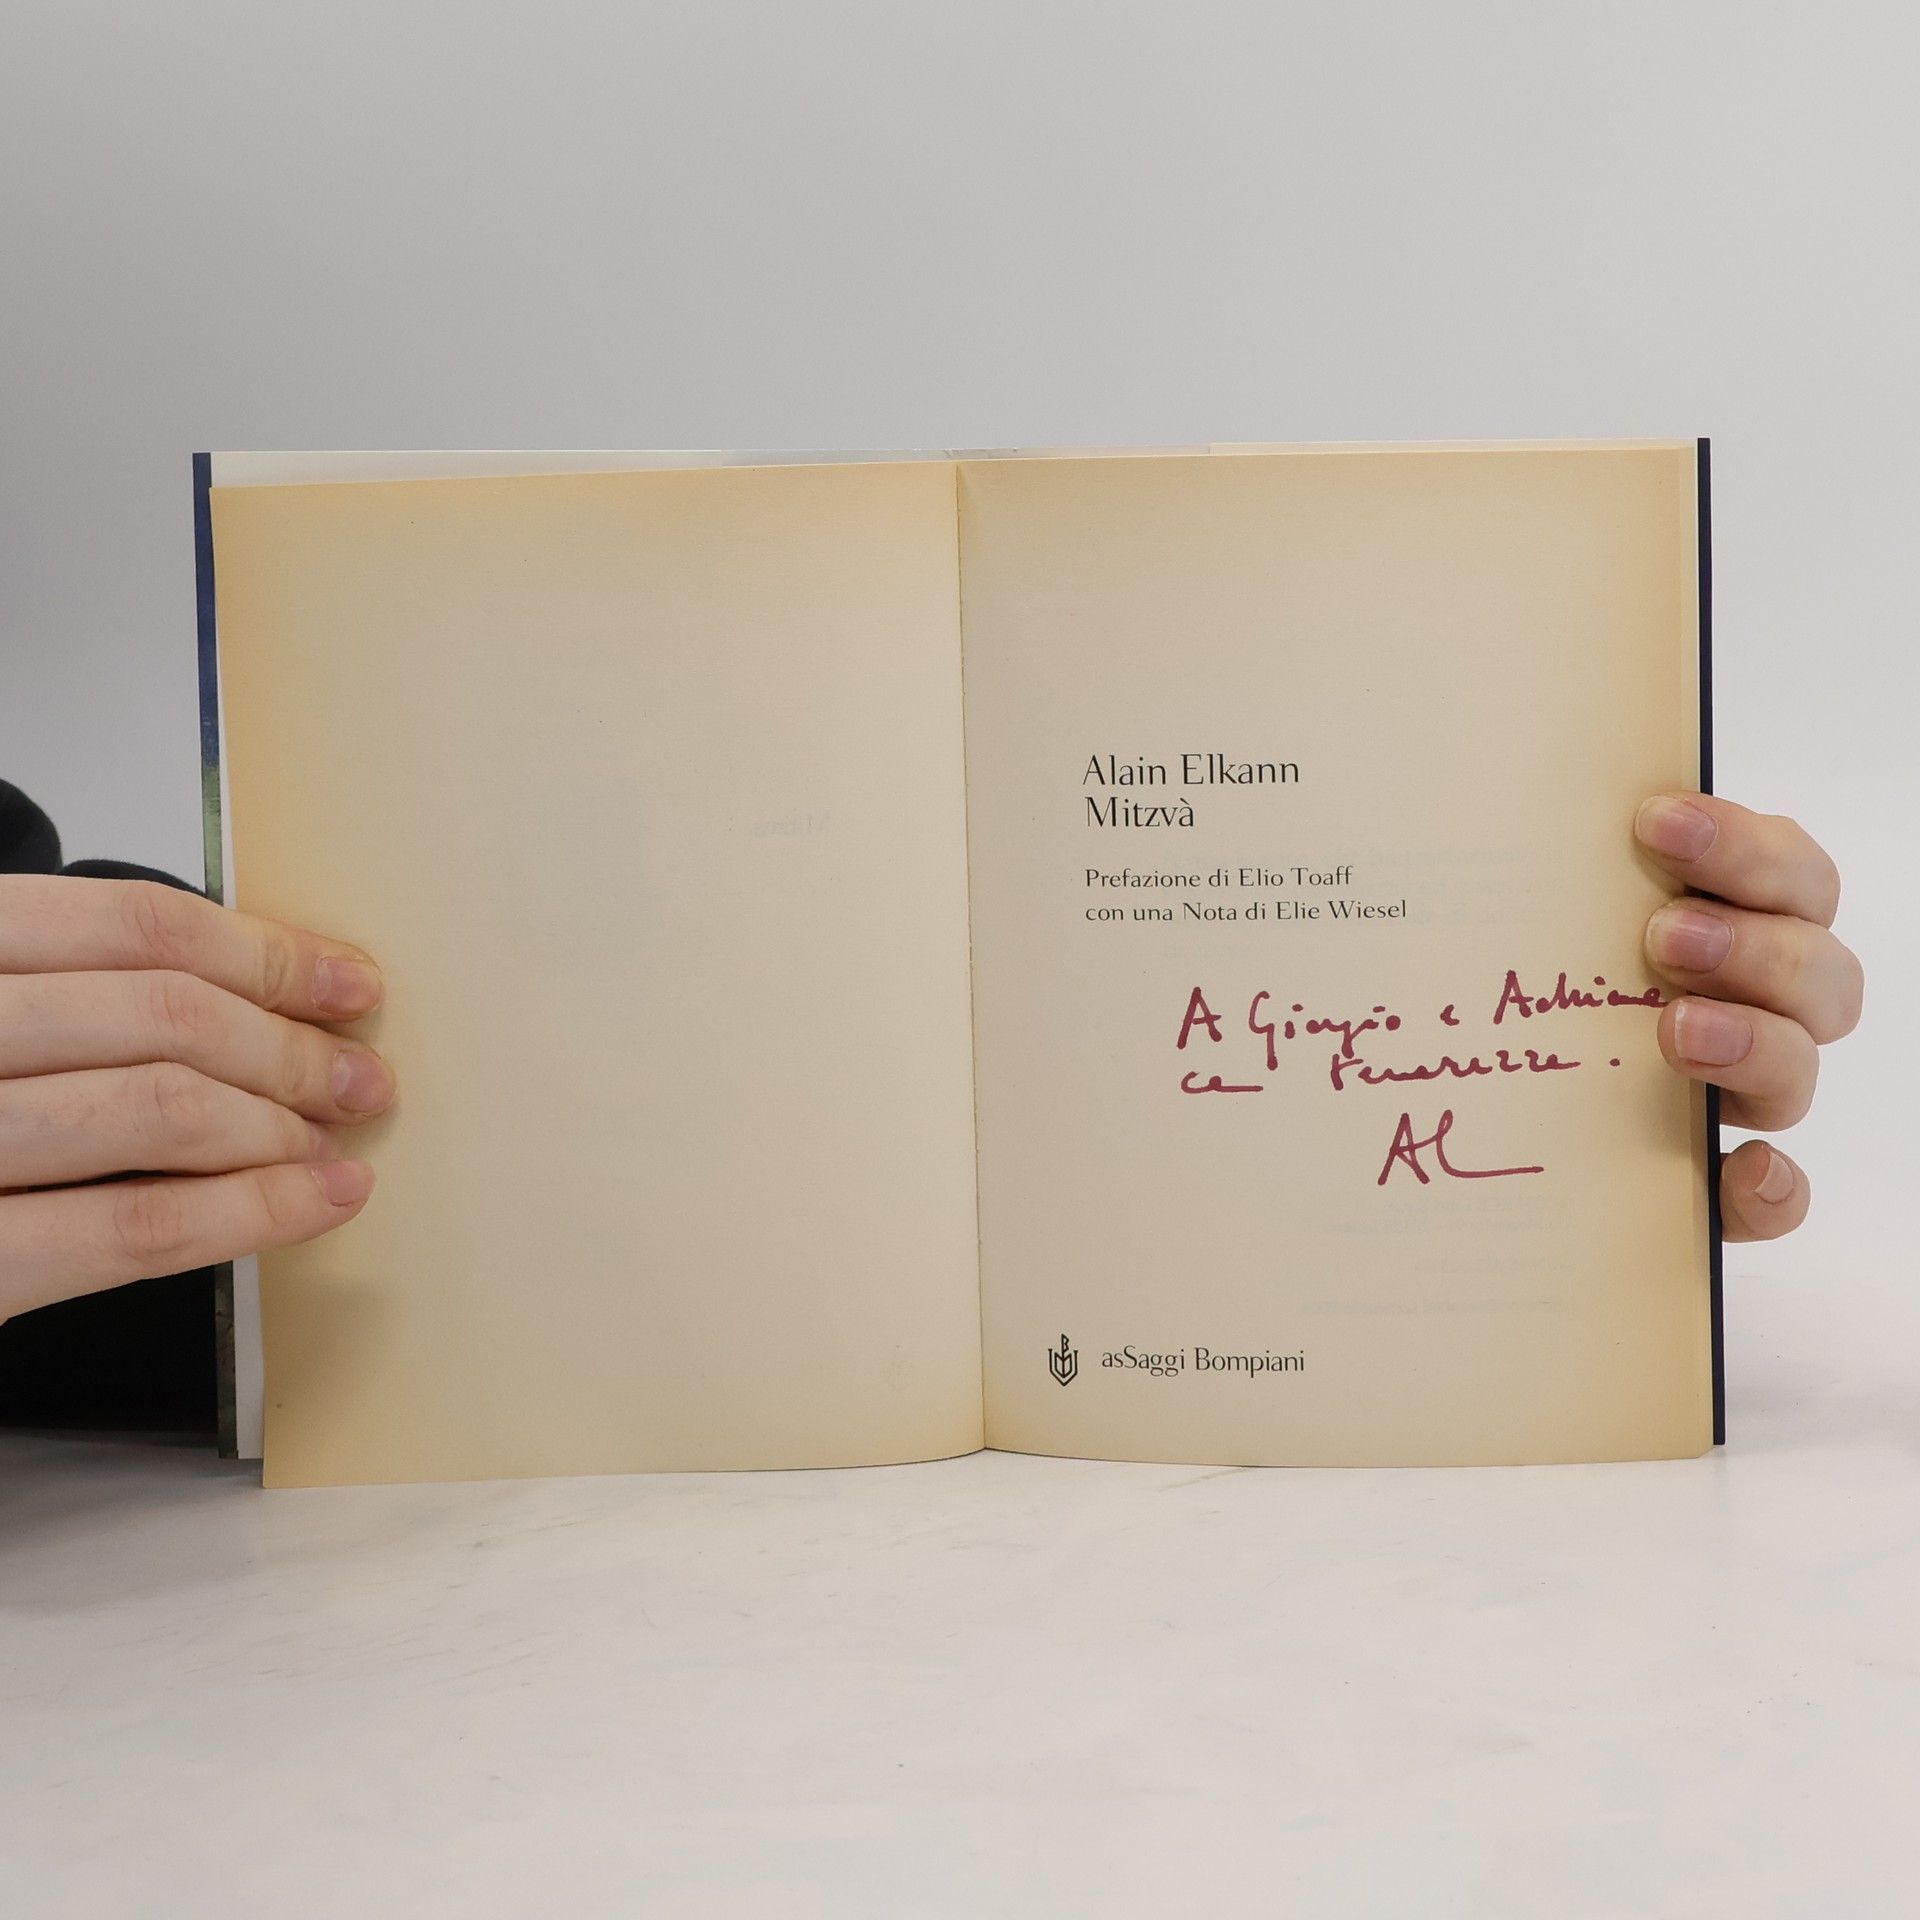 Alain Elkann
Mitzvà
Prefazione di Elio Toaff
con una Nota di Elie Wiesel
A Giorgio e Adriana
con tenerezza.
Al
asSaggi Bompiani